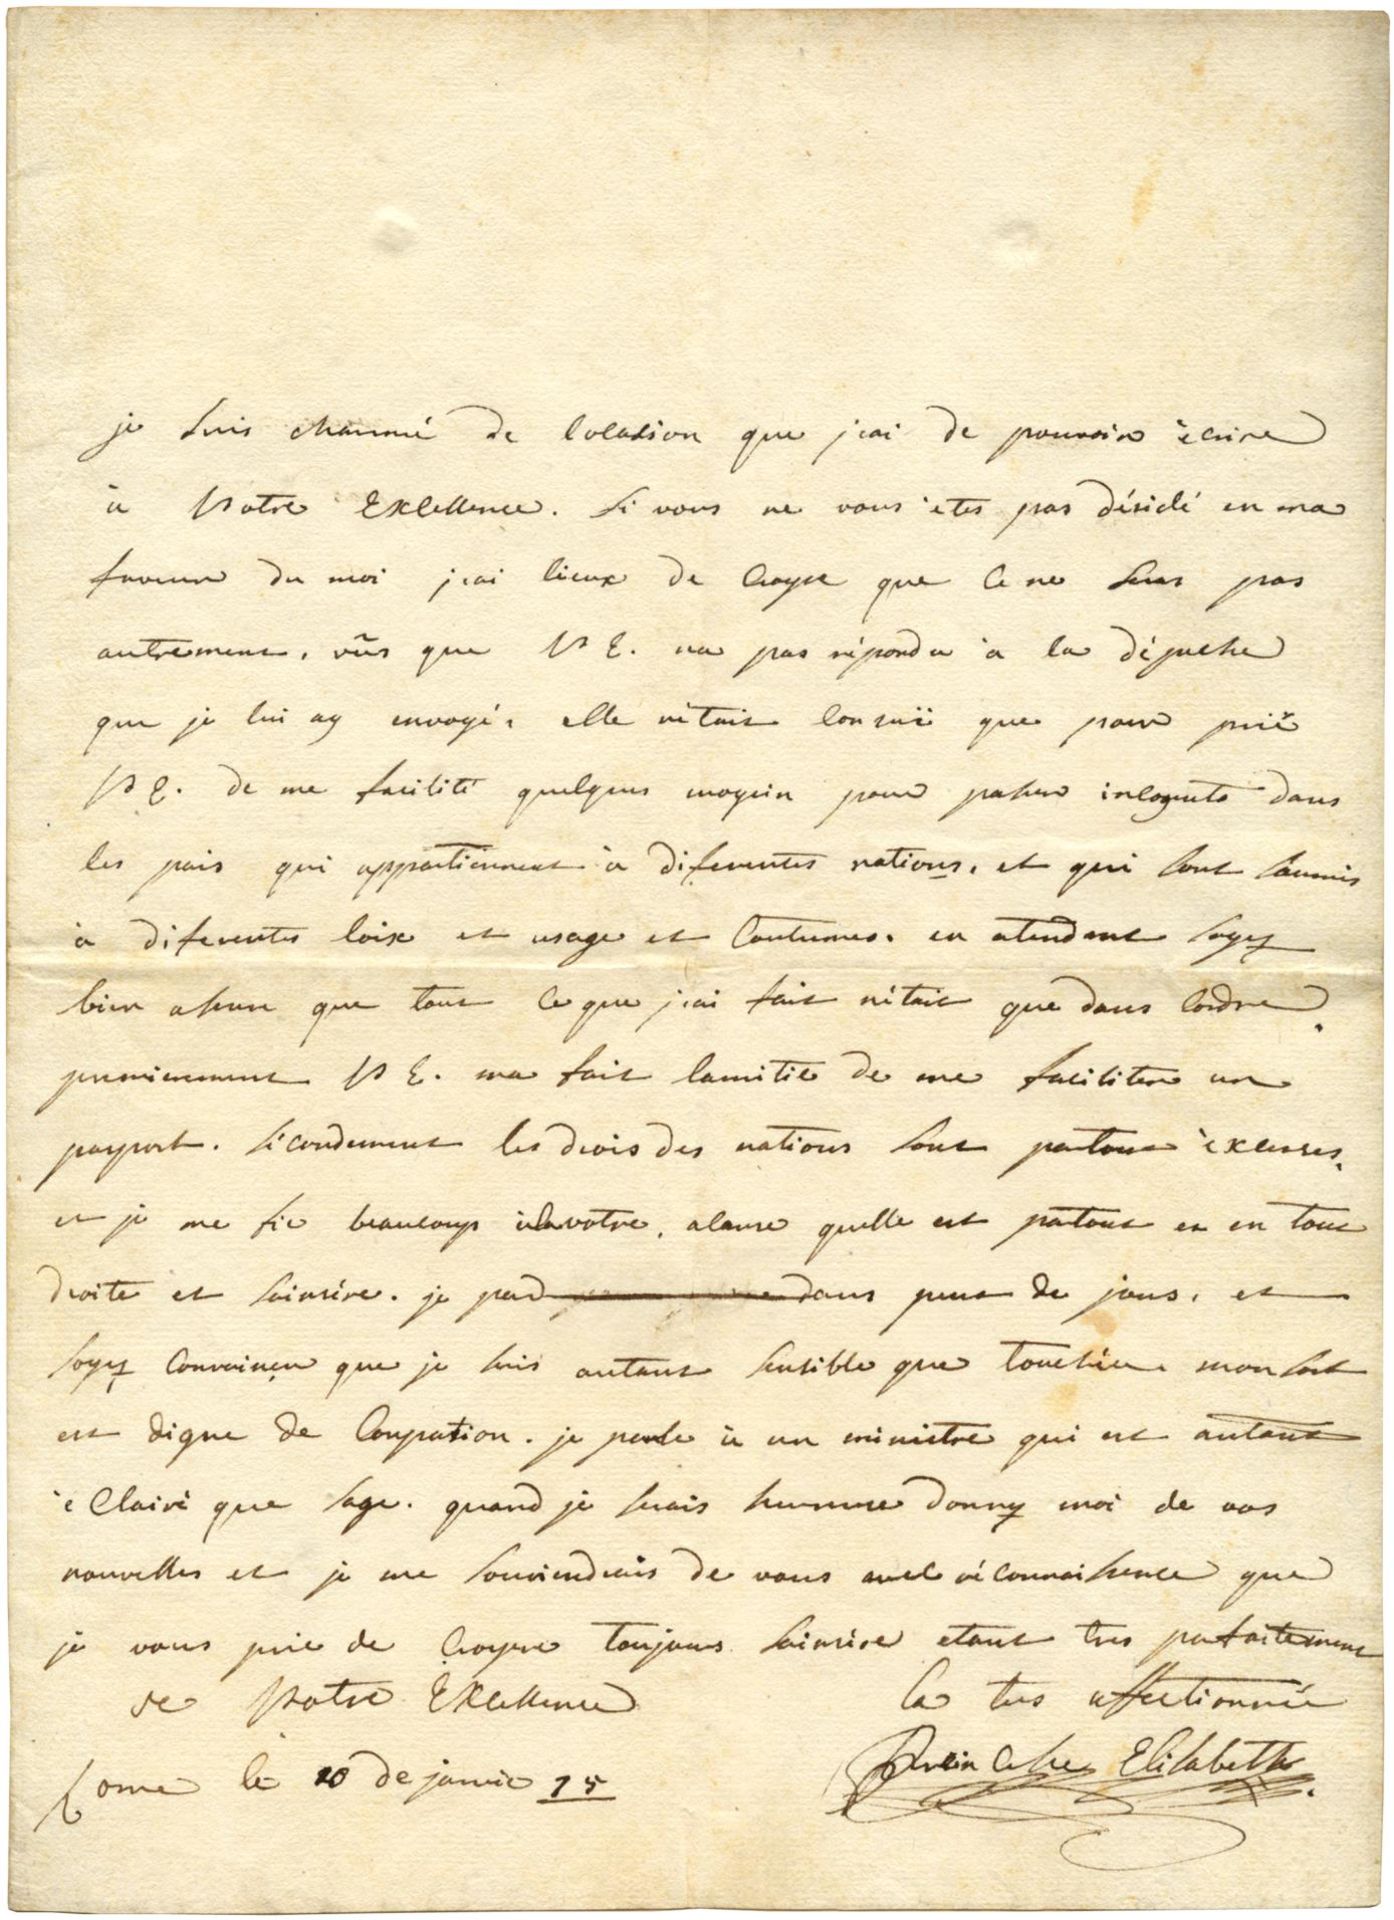 je suis charmé de locasion que j'ai de pouvoir ècrire
à Votre Exellence. si vous ne vous ètes pas désidé en ma
faveur du moi j'ai lieux de croyre que ce ne sera pas
autrement. vûs que V E. na pas répondu à la dépeche
que je lui ay envoyé, elle nétait consuë que pour prié
V E. de me facilité quelques moyein pour passer incognito dans
les pais qui appartiennent à diferentes nations. et qui sont soumis
à diferentes loix et usage et Coutumes. en atendent soyez
bien assure que tout ce que j'ai fait nétait que dans lordre,
premierement V E. ma fait lamitié de me faciliter un
pasport. sécondement les drois des nations sont partout èxenses,
et je me fie beaucoup à la votre, a cause quelle est partout et en tout
droite et sainsére. je pard dans peut de jours, et
soyez Convaincu que je suis autant sensible que touchée. mon sort
est digne de Conpation. je parle à un ministre qui est autant
èClairé que sage. quand je serais heureuse donnez moi de vos
nouvelles et je me souviendrais de vous avec réconnaissence que
je vous prie de croyre toujours sainsére etant tres parfaitement
de Votre Exellence La tres affectionnée
Rome le 10 de janvie 75 Princesse Elisabeth.